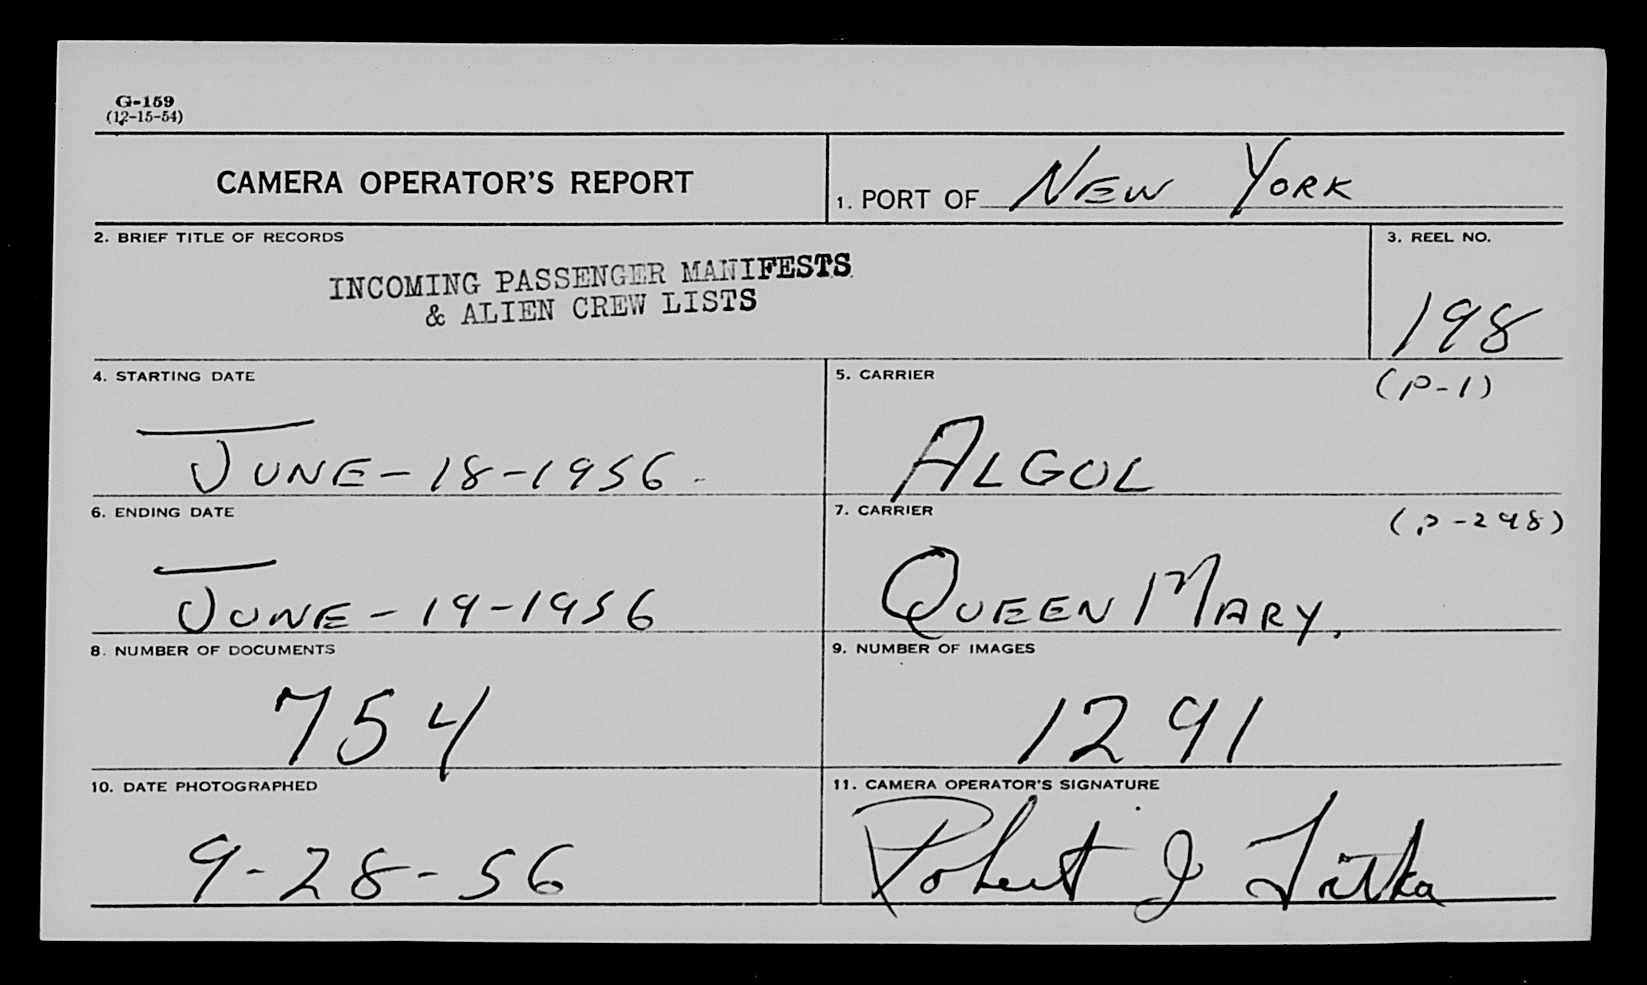 G-159
(12-15-54)
CAMERA OPERATOR'S REPORT
1. PORT OF NEW YORK
2. BRIEF TITLE OF RECORDS
INCOMING PASSENGER MANIFESTS
& ALIEN CREW LISTS
3. REEL NO.
198
4. STARTING DATE
JUNE-18-1956.
5. CARRIER
(P-1)
ALGOL
6. ENDING DATE
JUNE-19-1956
7. CARRIER
(P-298)
QUEEN MARY.
8. NUMBER OF DOCUMENTS
754
9. NUMBER OF IMAGES
1291
10. DATE PHOTOGRAPHED
9-28-56
11. CAMERA OPERATOR'S SIGNATURE
Robert J